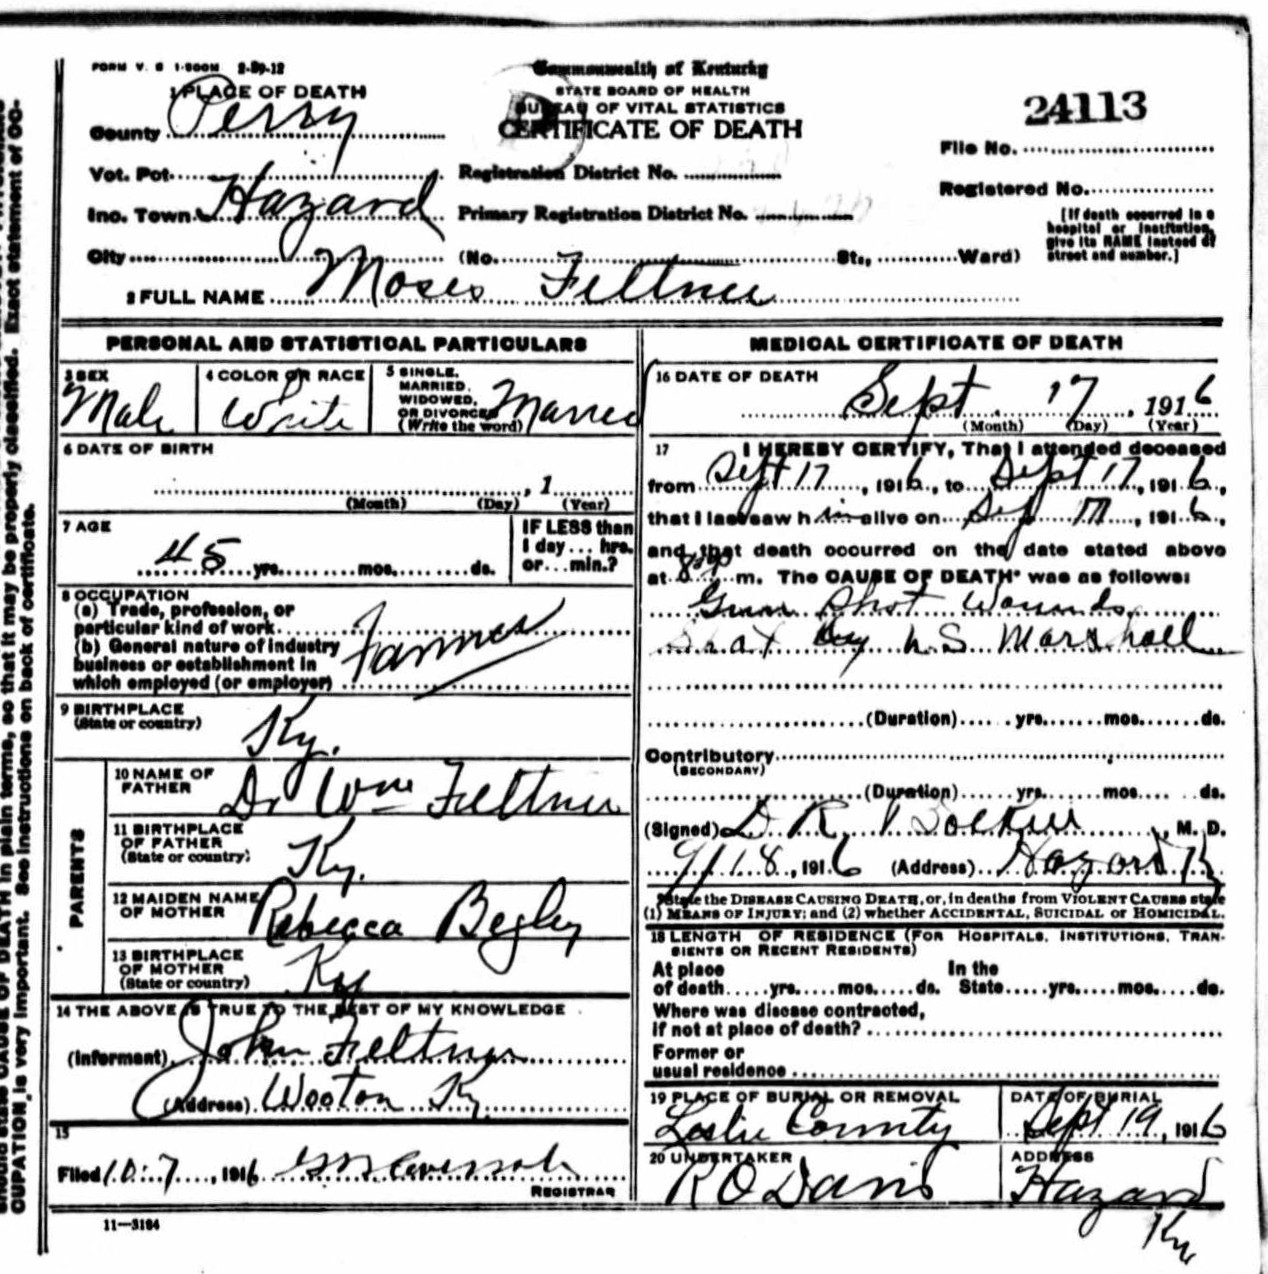 FORM V. S 1-500M 2-29-12
Commonwealth of Kentucky
STATE BOARD OF HEALTH
BUREAU OF VITAL STATISTICS
CERTIFICATE OF DEATH
24113
File No.
Registered No.
[If death occurred in a hospital or institution, give its NAME instead of street and number.]
1 PLACE OF DEATH
County Perry
Vot. Pct.
Registration District No.
Inc. Town Hazard
Primary Registration District No.
City (No. St., Ward)
2 FULL NAME Moses Feltner
PERSONAL AND STATISTICAL PARTICULARS
3 SEX Male
4 COLOR OR RACE White
5 SINGLE, MARRIED, WIDOWED, OR DIVORCED (Write the word) Married
6 DATE OF BIRTH
, 1
(Month) (Day) (Year)
7 AGE
45 yrs. mos. ds.
IF LESS than 1 day... hrs. or... min.?
8 OCCUPATION
(a) Trade, profession, or particular kind of work
(b) General nature of industry business or establishment in which employed (or employer)
Farmer
9 BIRTHPLACE
(State or country)
Ky.
PARENTS
10 NAME OF FATHER Dr Wm Feltner
11 BIRTHPLACE OF FATHER (State or country) Ky.
12 MAIDEN NAME OF MOTHER Rebecca Begley
13 BIRTHPLACE OF MOTHER (State or country) Ky
14 THE ABOVE IS TRUE TO THE BEST OF MY KNOWLEDGE
(Informant) John Feltner
(Address) Wooton Ky
15
Filed 10-7, 1916
REGISTRAR
11—3184
MEDICAL CERTIFICATE OF DEATH
16 DATE OF DEATH
Sept. 17, 1916
(Month) (Day) (Year)
17 I HEREBY CERTIFY, That I attended deceased
from Sept 17, 1916, to Sept 17, 1916,
that I last saw h im alive on Sep 17, 1916,
and that death occurred on the date stated above
at m. The CAUSE OF DEATH* was as follows:
Gun Shot Wounds
Shot by U.S Marshall
(Duration) yrs. mos. ds.
Contributory
(SECONDARY)
(Duration) yrs. mos. ds.
(Signed) D R , M. D.
9/18, 1916 (Address) Hazard Ky
*State the DISEASE CAUSING DEATH, or, in deaths from VIOLENT CAUSES state
(1) MEANS OF INJURY; and (2) whether ACCIDENTAL, SUICIDAL OR HOMICIDAL.
18 LENGTH OF RESIDENCE (FOR HOSPITALS, INSTITUTIONS, TRANSIENTS OR RECENT RESIDENTS)
At place of death yrs. mos. ds. In the State yrs. mos. ds.
Where was disease contracted, if not at place of death?
Former or usual residence
19 PLACE OF BURIAL OR REMOVAL Leslie County
DATE OF BURIAL Sept 19, 1916
20 UNDERTAKER R O Davis
ADDRESS Hazard Ky
should state CAUSE OF DEATH in plain terms, so that it may be properly classified. Exact statement of OC-
CUPATION is very important. See instructions on back of certificate.